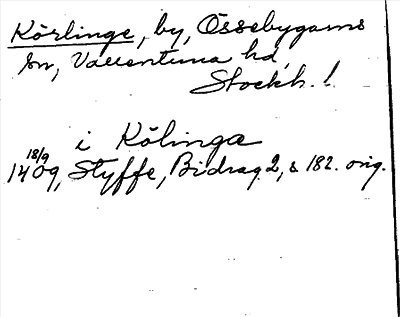 Körlinge, by, Össebygarns
sn, Vallentuna hd,
Stockh. l.
i Kölinga
18/9
1409, Styffe, Bidrag 2, s 182. orig.